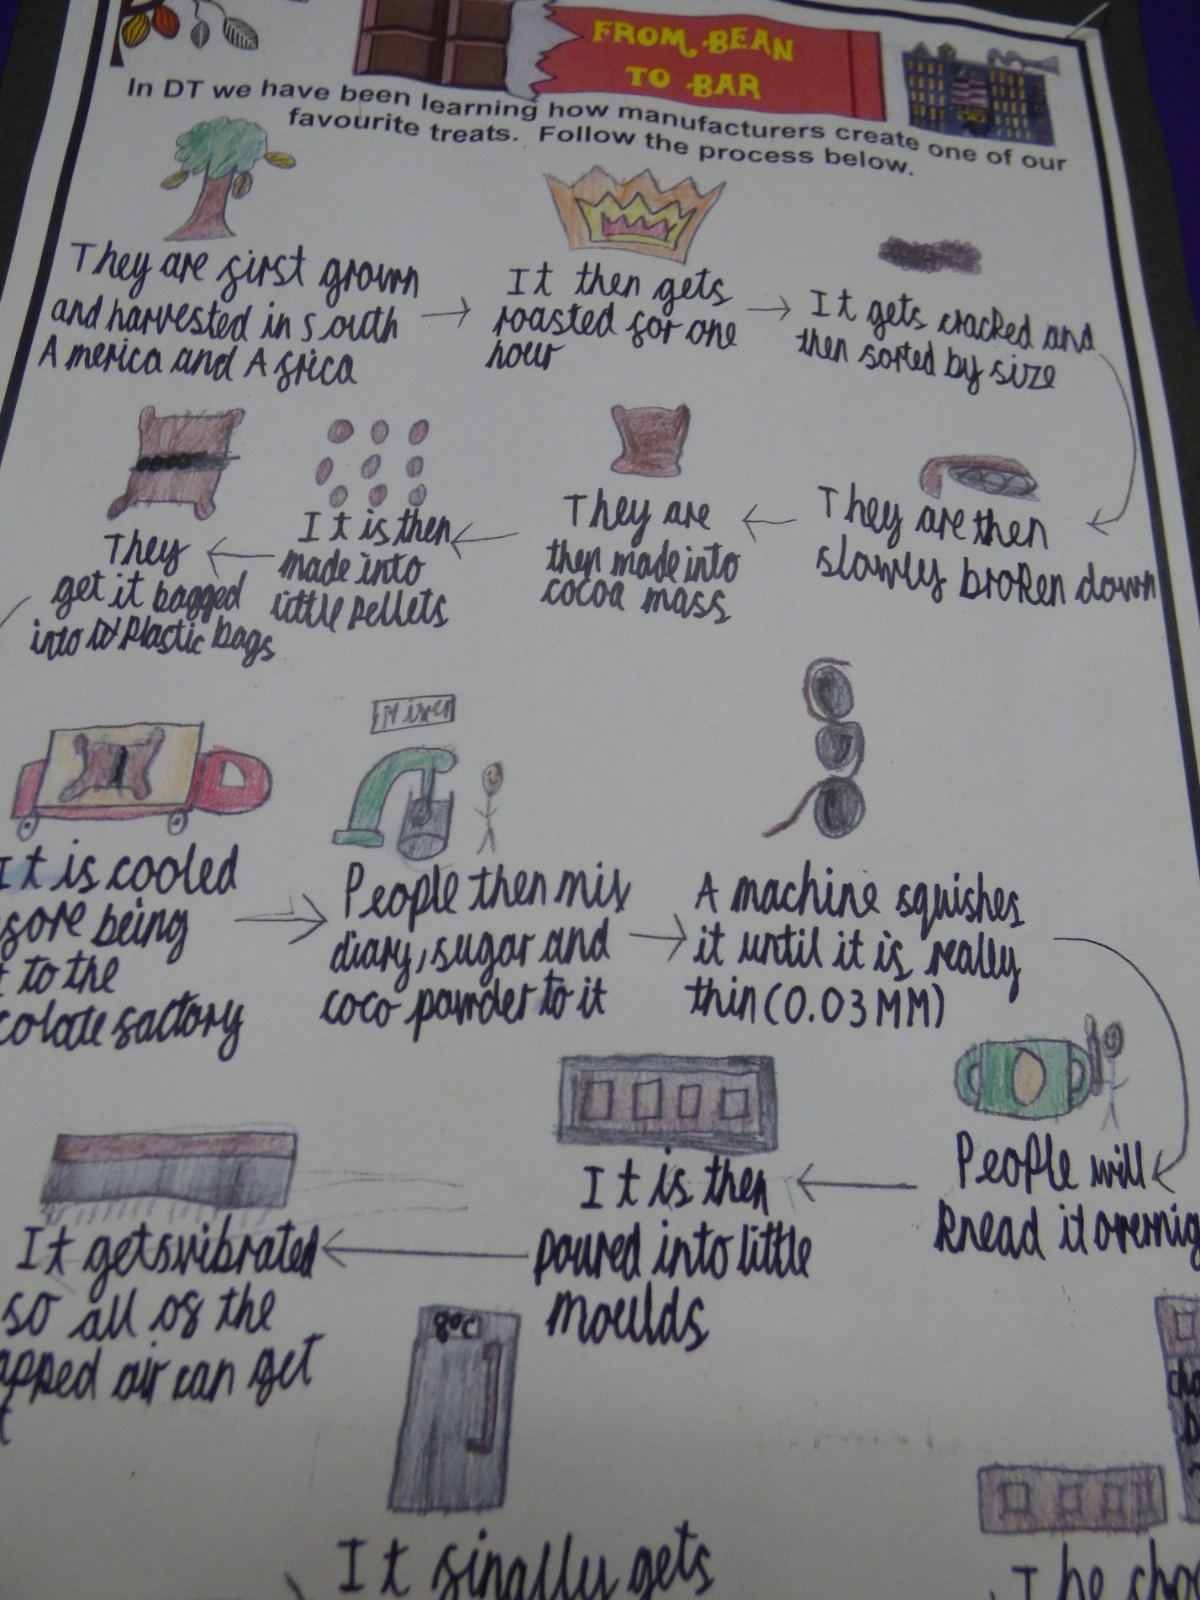 FROM BEAN
TO BAR
In DT we have been learning how manufacturers create one of our
favourite treats. Follow the process below.
They are first grown
and harvested in South
America and Africa
It then gets
roasted for one
hour
It gets cracked and
then sorted by size
They are then
slowly broken down
They are
then made into
cocoa mass
It is then
made into
little pellets
They
get it bagged
into Plastic bags
It is cooled
fore being
t to the
colate factory
Mixer
People then mix
diary, sugar and
coco powder to it
A machine squishes
it until it is really
thin (0.03MM)
People will
knead it overnig
It is then
poured into little
moulds
It gets vibrated
so all of the
apped air can get
t
8°C
It finally gets
cho
b
The cho